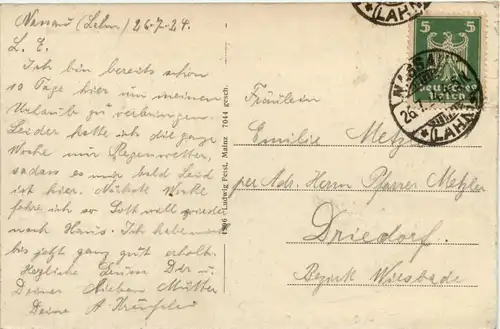 Nassau (Lahn) 26-7-24.
L. E.
Ich bin bereits schon
10 Tage hier um meinen
Urlaub zu verbringen.
Leider hatte ich die ganze
Woche nur Regenwetter,
sodass es mir bald Leid
ist hier. Nächste Woche
fahre ich so Gott will wieder
nach Haus. Ich habe mich
bis jetzt ganz gut erholt.
Herzliche Grüsse Dir u.
Deiner lieben Mutter
Deine A.
Ludwig Feist, Mainz 7044 gesch.
Fräulein
Emilie Metzler
per Adr. Herrn Pfarrer Metzler
Driedorf.
Bezirk Wiesbaden
5 5
Deutsches Reich
NASSAU
(LAHN)
(LAHN)